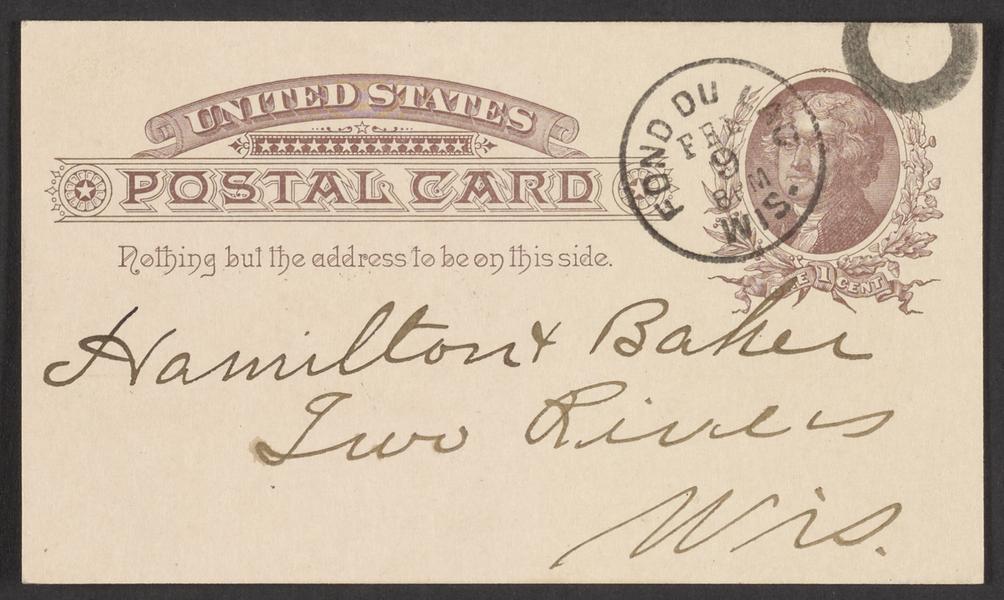 UNITED STATES
POSTAL CARD
Nothing but the address to be on this side.
FOND DU LAC
FEB
9
WIS.
ONE 1 CENT
Hamilton & Baker
Two Rivers
Wis.